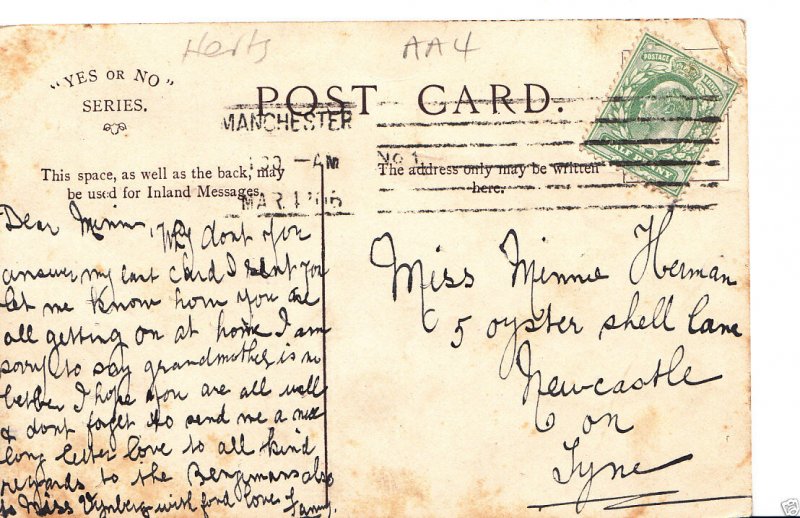 Herts AA4
"YES OR NO"
SERIES.
POST CARD.
MANCHESTER
AM
No 1
MAR 1 06
This space, as well as the back, may
be used for Inland Messages.
The address only may be written
here.
POSTAGE
PENNY
Dear Minnie, Why dont you
answer my last card I sent you
let me know how you are
all getting on at home I am
sorry to say grandmother is no
better I hope you are all well
& dont forget to send me a nice
long letter love to all kind
regards to the Bergmans also
to Miss with fond love Fanny.
Miss Minnie Herman
5 oyster shell lane
Newcastle
on
Tyne